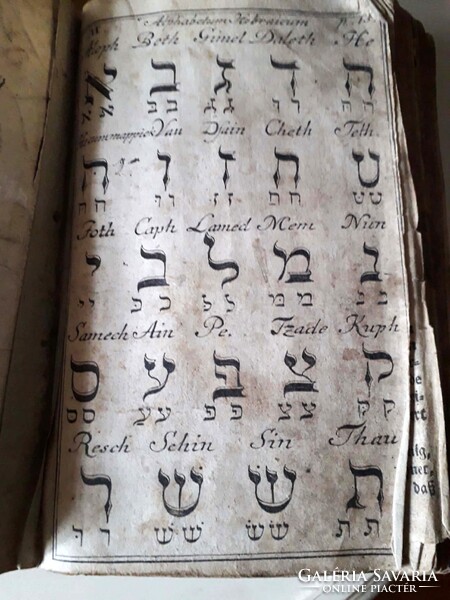 Alphabetum Hebraicum
Aleph Beth Gimel Daleth He
א ב ג ד ה
אא בב גג דד הה
mappic Vau Dsain Cheth Teth
ה ו ז ח ט
הה וו זז חח טט
Joth Caph Lamed Mem Nun
י כ ל מ נ
יי ככ לל ממ ננ
Samech Ain Pe. Tzade Kuph
ס ע פ צ ק
סס עע פפ צצ קק
Resch Schin Sin Thau
ר שׁ שׂ ת
רר שׁשׁ שׂשׂ תת
daß
GALÉRIA SAVARIA
ONLINE PIACTÉR